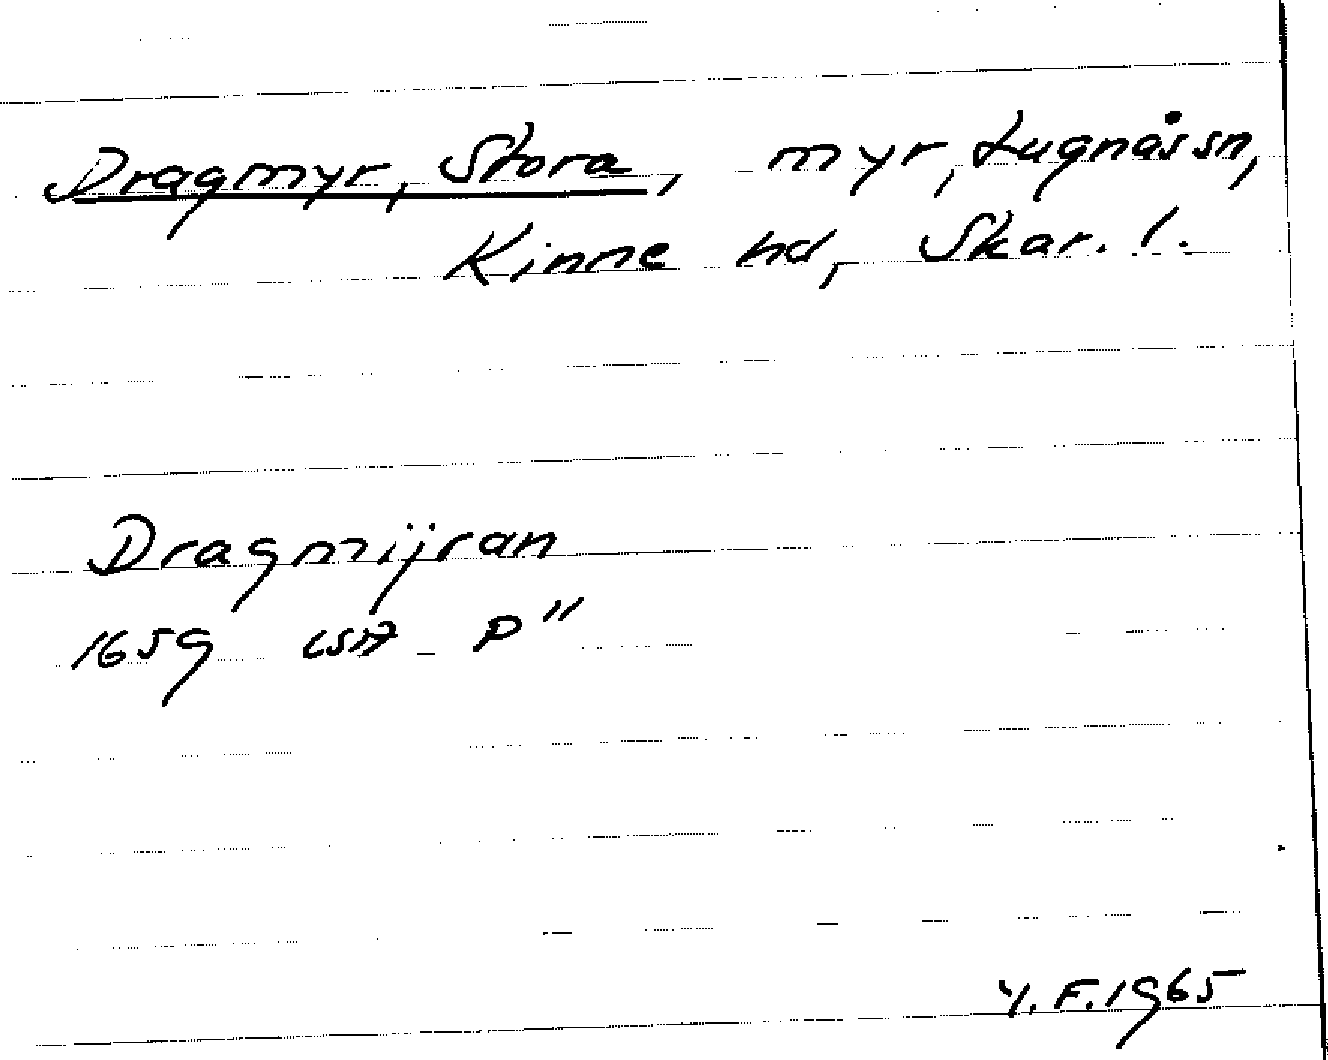 Dragmyr, Stora, myr, Lugnås sn,
Kinne hd, Skar. l.
Dragmijran
1659 LSA P"
Y. F. 1965